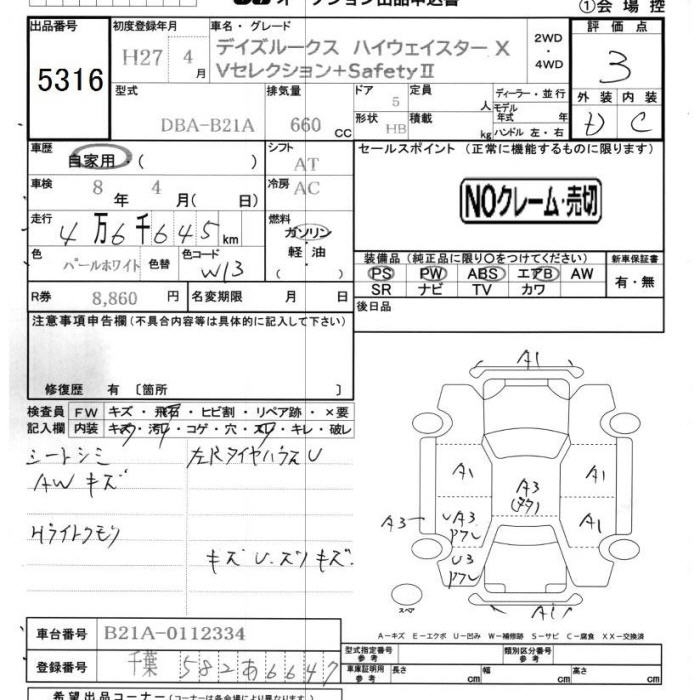 オークション出品申込書
①会場控
出品番号
5316
初度登録年月
H27 4月
車名・グレード
デイズルークス ハイウェイスターX
Vセレクション+SafetyⅡ
2WD
・
4WD
評価点
3
外装 内装
D C
型式
DBA-B21A
排気量
660 CC
ドア
5
形状 HB
定員
人
積載
kg
ディーラー・並行
モデル年式 年
ハンドル 左・右
車歴
自家用・( )
シフト
AT
車検
8年 4月( 日)
冷房
AC
走行
4万6千645km
燃料
ガソリン
軽・油
( )
色
パールホワイト
色替
色コード
W13
R券 8,860 円
名変期限 月 日
セールスポイント (正常に機能するものに限ります)
NOクレーム・売切
装備品 (純正品に限り○をつけてください)
PS PW ABS エアB AW
SR ナビ TV カワ
新車保証書
有・無
後日品
注意事項申告欄 (不具合内容等は具体的に記入して下さい)
修復歴 有 〔箇所 〕
検査員記入欄
FW キズ・飛石・ヒビ割・リペア跡・×要
内装 キズ・汚レ・コゲ・穴・スレ・キレ・破レ
シートシミ
AWキズ
Hライトクモリ
左Rタイヤハウス U
キズ U.ズリキズ
A1
A1
A1
A3
A3
UA3
A1
U3
A1
スペア
A-キズ E-エクボ U-凹み W-補修跡 S-サビ C-腐食 XX-交換済
車台番号 B21A-0112334
登録番号 千葉 582 あ 6647
型式指定番号
参考
類別区分番号
参考
車庫証明用
参考
長さ cm
幅 cm
高さ cm
希望出品コーナー (コーナーは各会場により異なります)